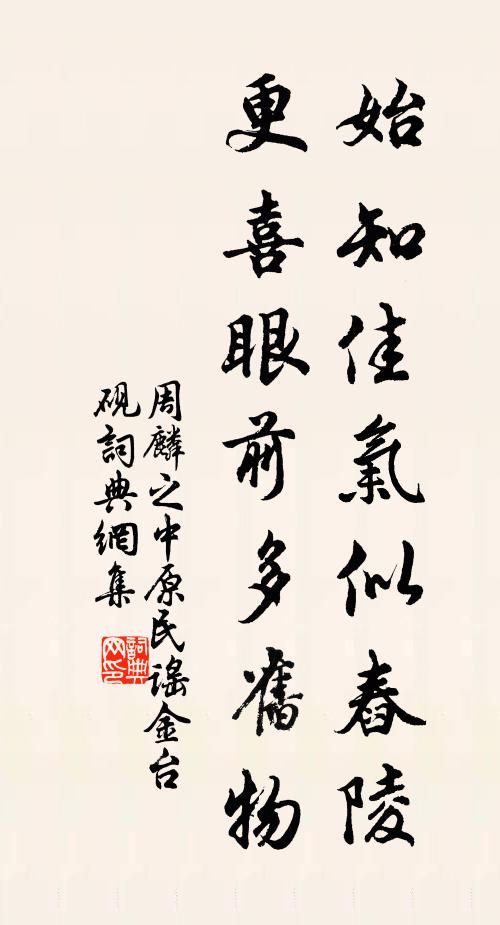 始知佳氣似舂陵
更喜眼前多舊物
周麟之中原民謠金台
硯詞典網集
詞典网印